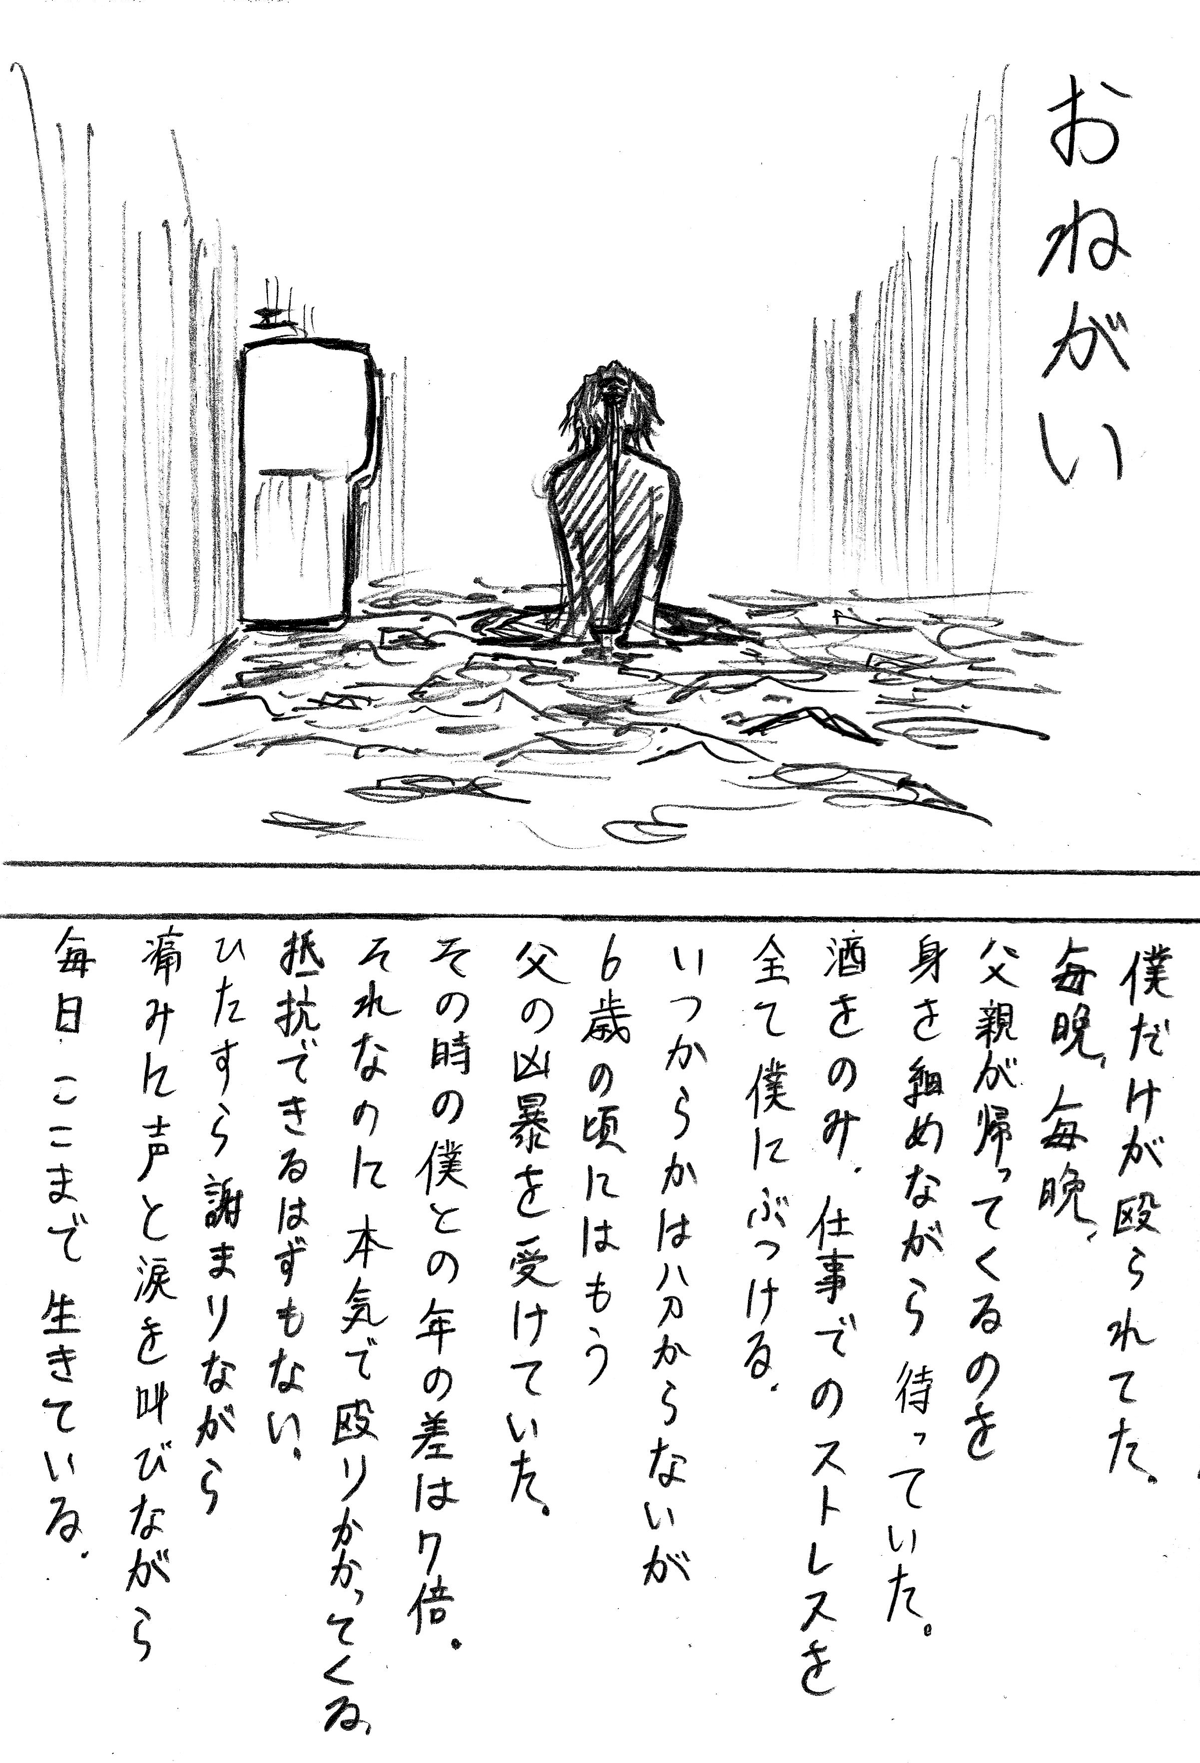 おねがい
僕だけが殴られてた。
毎晩、毎晩、
父親が帰ってくるのを
身を縮めながら待っていた。
酒をのみ、仕事でのストレスを
全て僕にぶつける。
いつからかは分からないが
6歳の頃にはもう
父の凶暴を受けていた。
その時の僕との年の差は7倍。
それなのに本気で殴りかかってくる。
抵抗できるはずもない。
ひたすら謝まりながら
痛みに声と涙を叫びながら
毎日ここまで生きている。